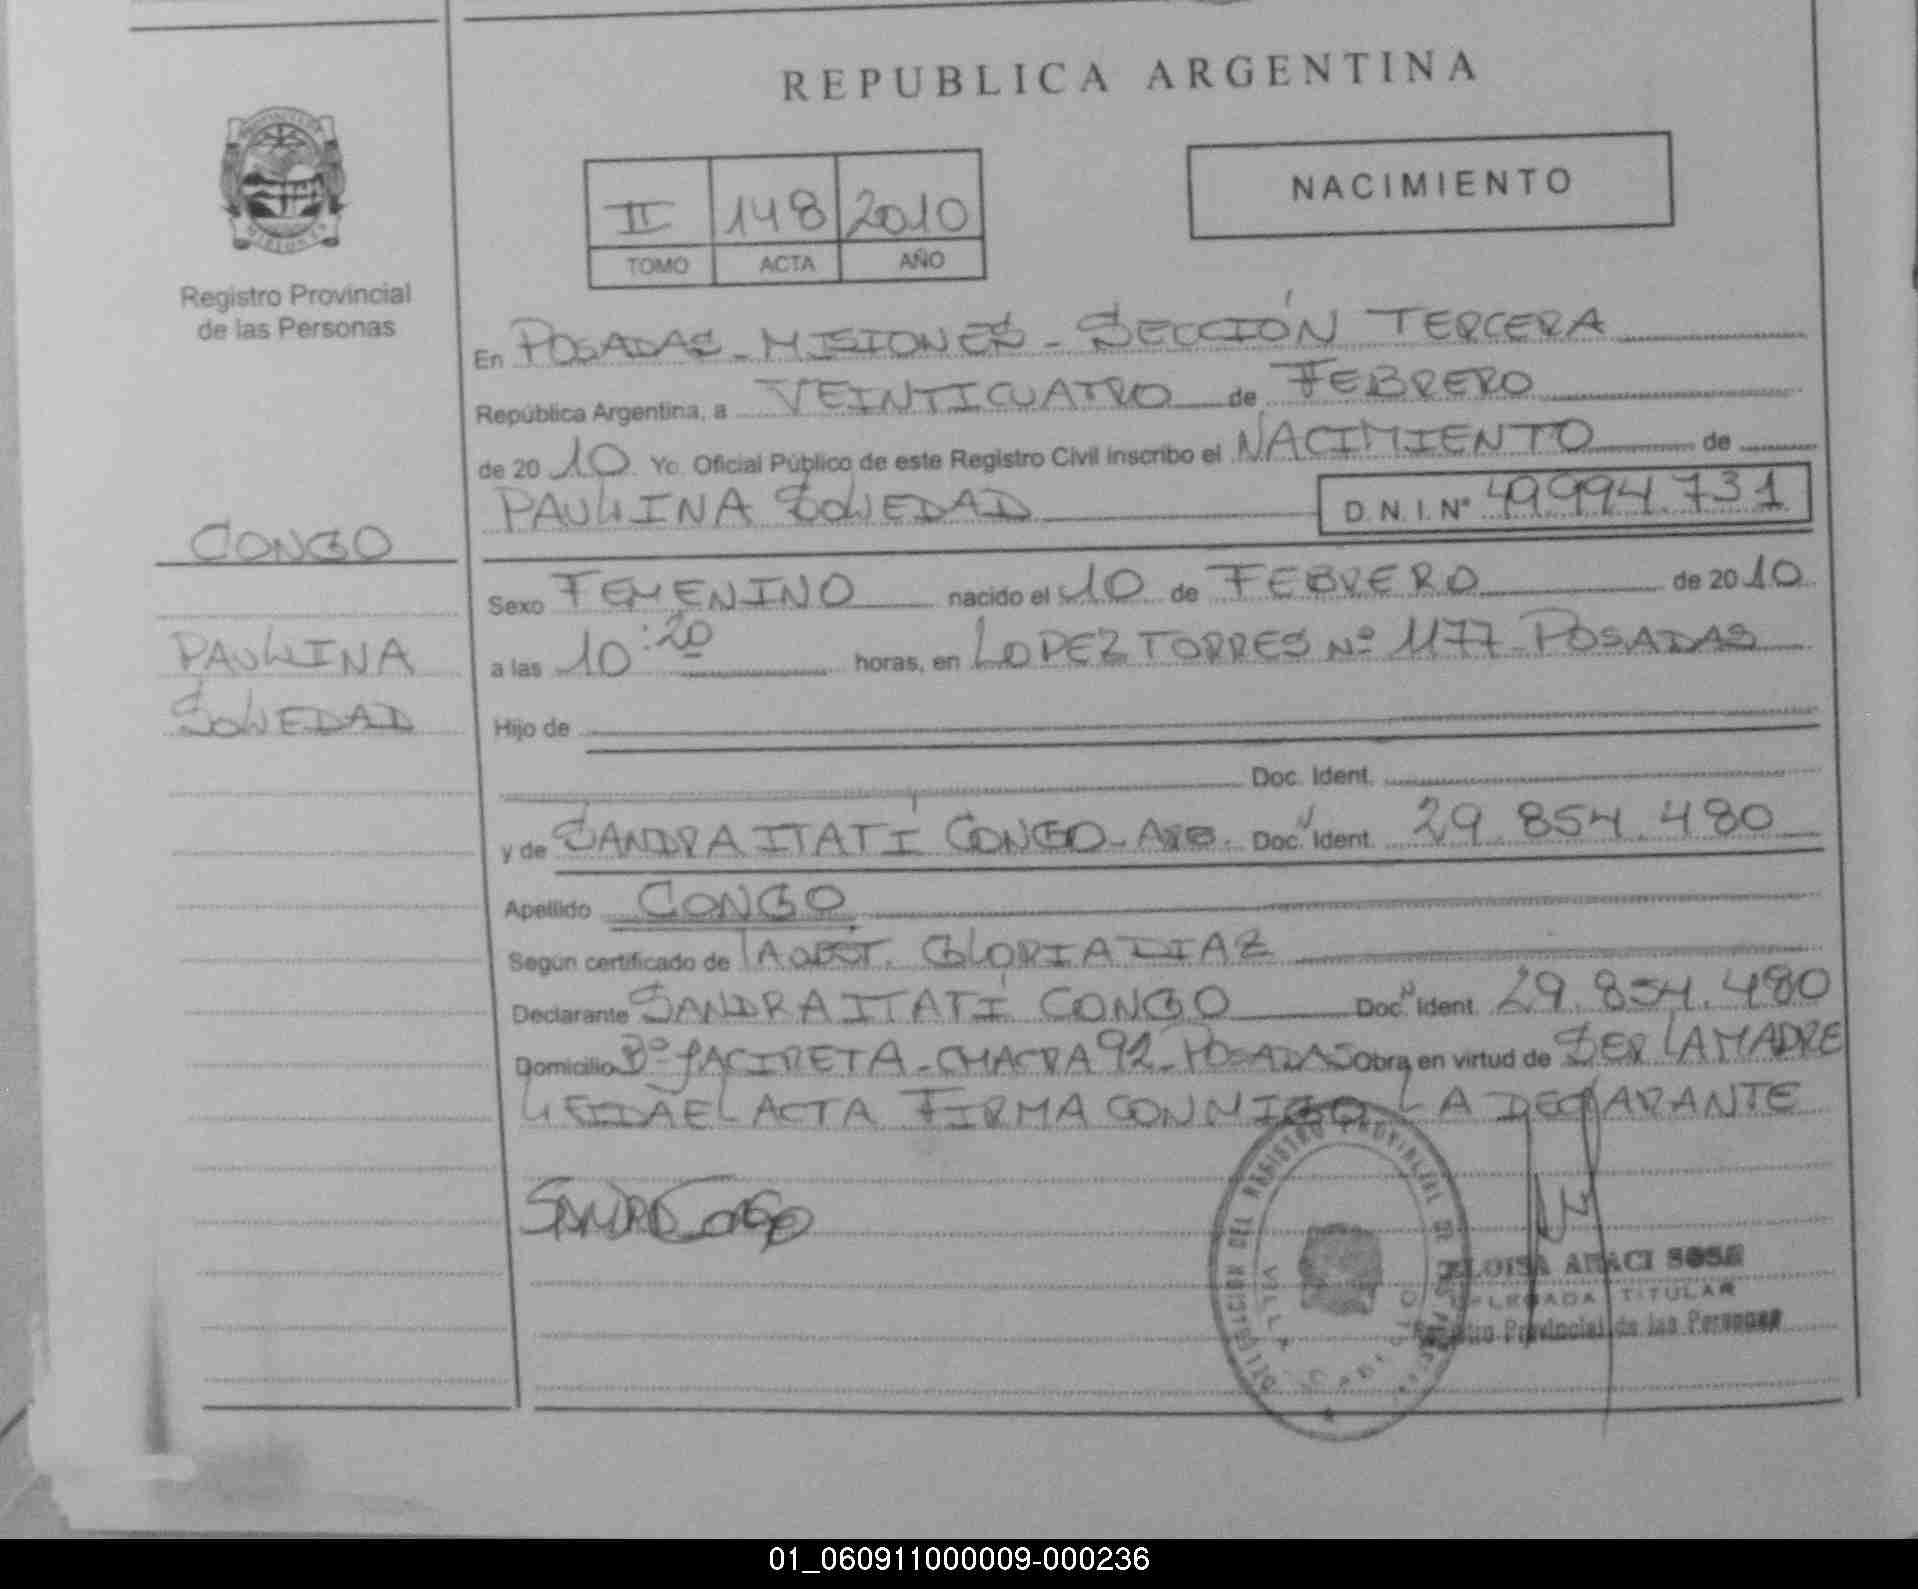 REPUBLICA ARGENTINA
NACIMIENTO
II 148 2010
TOMO ACTA AÑO
PROVINCIA DE
MISIONES
Registro Provincial
de las Personas
CONGO
PAULINA
SOLEDAD
En POSADAS - MISIONES - SECCIÓN TERCERA
República Argentina, a VEINTICUATRO de FEBRERO
de 20 10 Yo. Oficial Público de este Registro Civil inscribo el NACIMIENTO de
PAULINA SOLEDAD D.N.I. Nº 49.994.731
Sexo FEMENINO nacido el 10 de FEBRERO de 20 10
a las 10:20 horas, en LOPEZ TORRES Nº 1177 - POSADAS
Hijo de
Doc. Ident.
y de SANDRA ITATÍ CONGO - ARG. Doc. Ident. 29.854.480
Apellido CONGO
Según certificado de LA OBST. GLORIA DIAZ
Declarante SANDRA ITATÍ CONGO Doc. Ident. 29.854.480
Domicilio Bº YACIRETA - CHACRA 92 - POSADAS Obra en virtud de SER LA MADRE
LEIDA EL ACTA FIRMA CONMIGO LA DECLARANTE
SANDRA CONGO
DELEGACION DEL REGISTRO PROVINCIAL DE LAS PERSONAS
VILLA CABELLO
ELOISA ARACI SOSA
DELEGADA TITULAR
Registro Provincial de las Personas
01_060911000009-000236